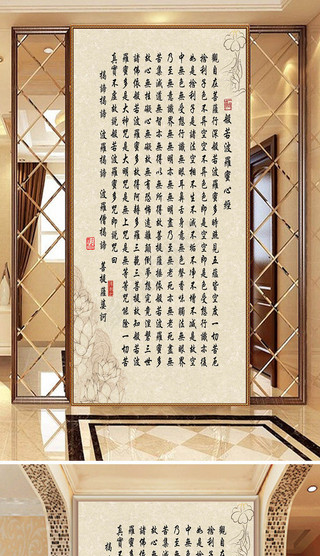 般若波羅蜜心經
觀自在菩薩行深般若波羅蜜多時照見五蘊皆空度一切苦厄
捨利子色不異空空不異色色即是空空即是色受想行識亦復
如是捨利子是諸法空相不生不滅不垢不淨不增不減是故空
中無色無受想行識無眼耳鼻舌身意無色聲香味觸法無眼界
乃至無意識界無無明亦無無明盡乃至無老死亦無老死盡無
苦集滅道無智亦無得以無所得故菩提薩埵依般若波羅蜜多
故心無掛礙無掛礙故無有恐怖遠離顛倒夢想究竟涅槃三世
諸佛依般若波羅蜜多故得阿耨多羅三藐三菩提故知般若波
羅蜜多是大神咒是大明咒是無上咒是無等等咒能除一切苦
真實不虛故說般若波羅蜜多咒即說咒曰
揭諦 揭諦 波羅揭諦 波羅僧揭諦 菩提薩婆訶
觀自在菩
捨利子色
如是捨利
中無色無
乃至無意
苦集滅道
故心無
諸佛依般
羅蜜多
真實不